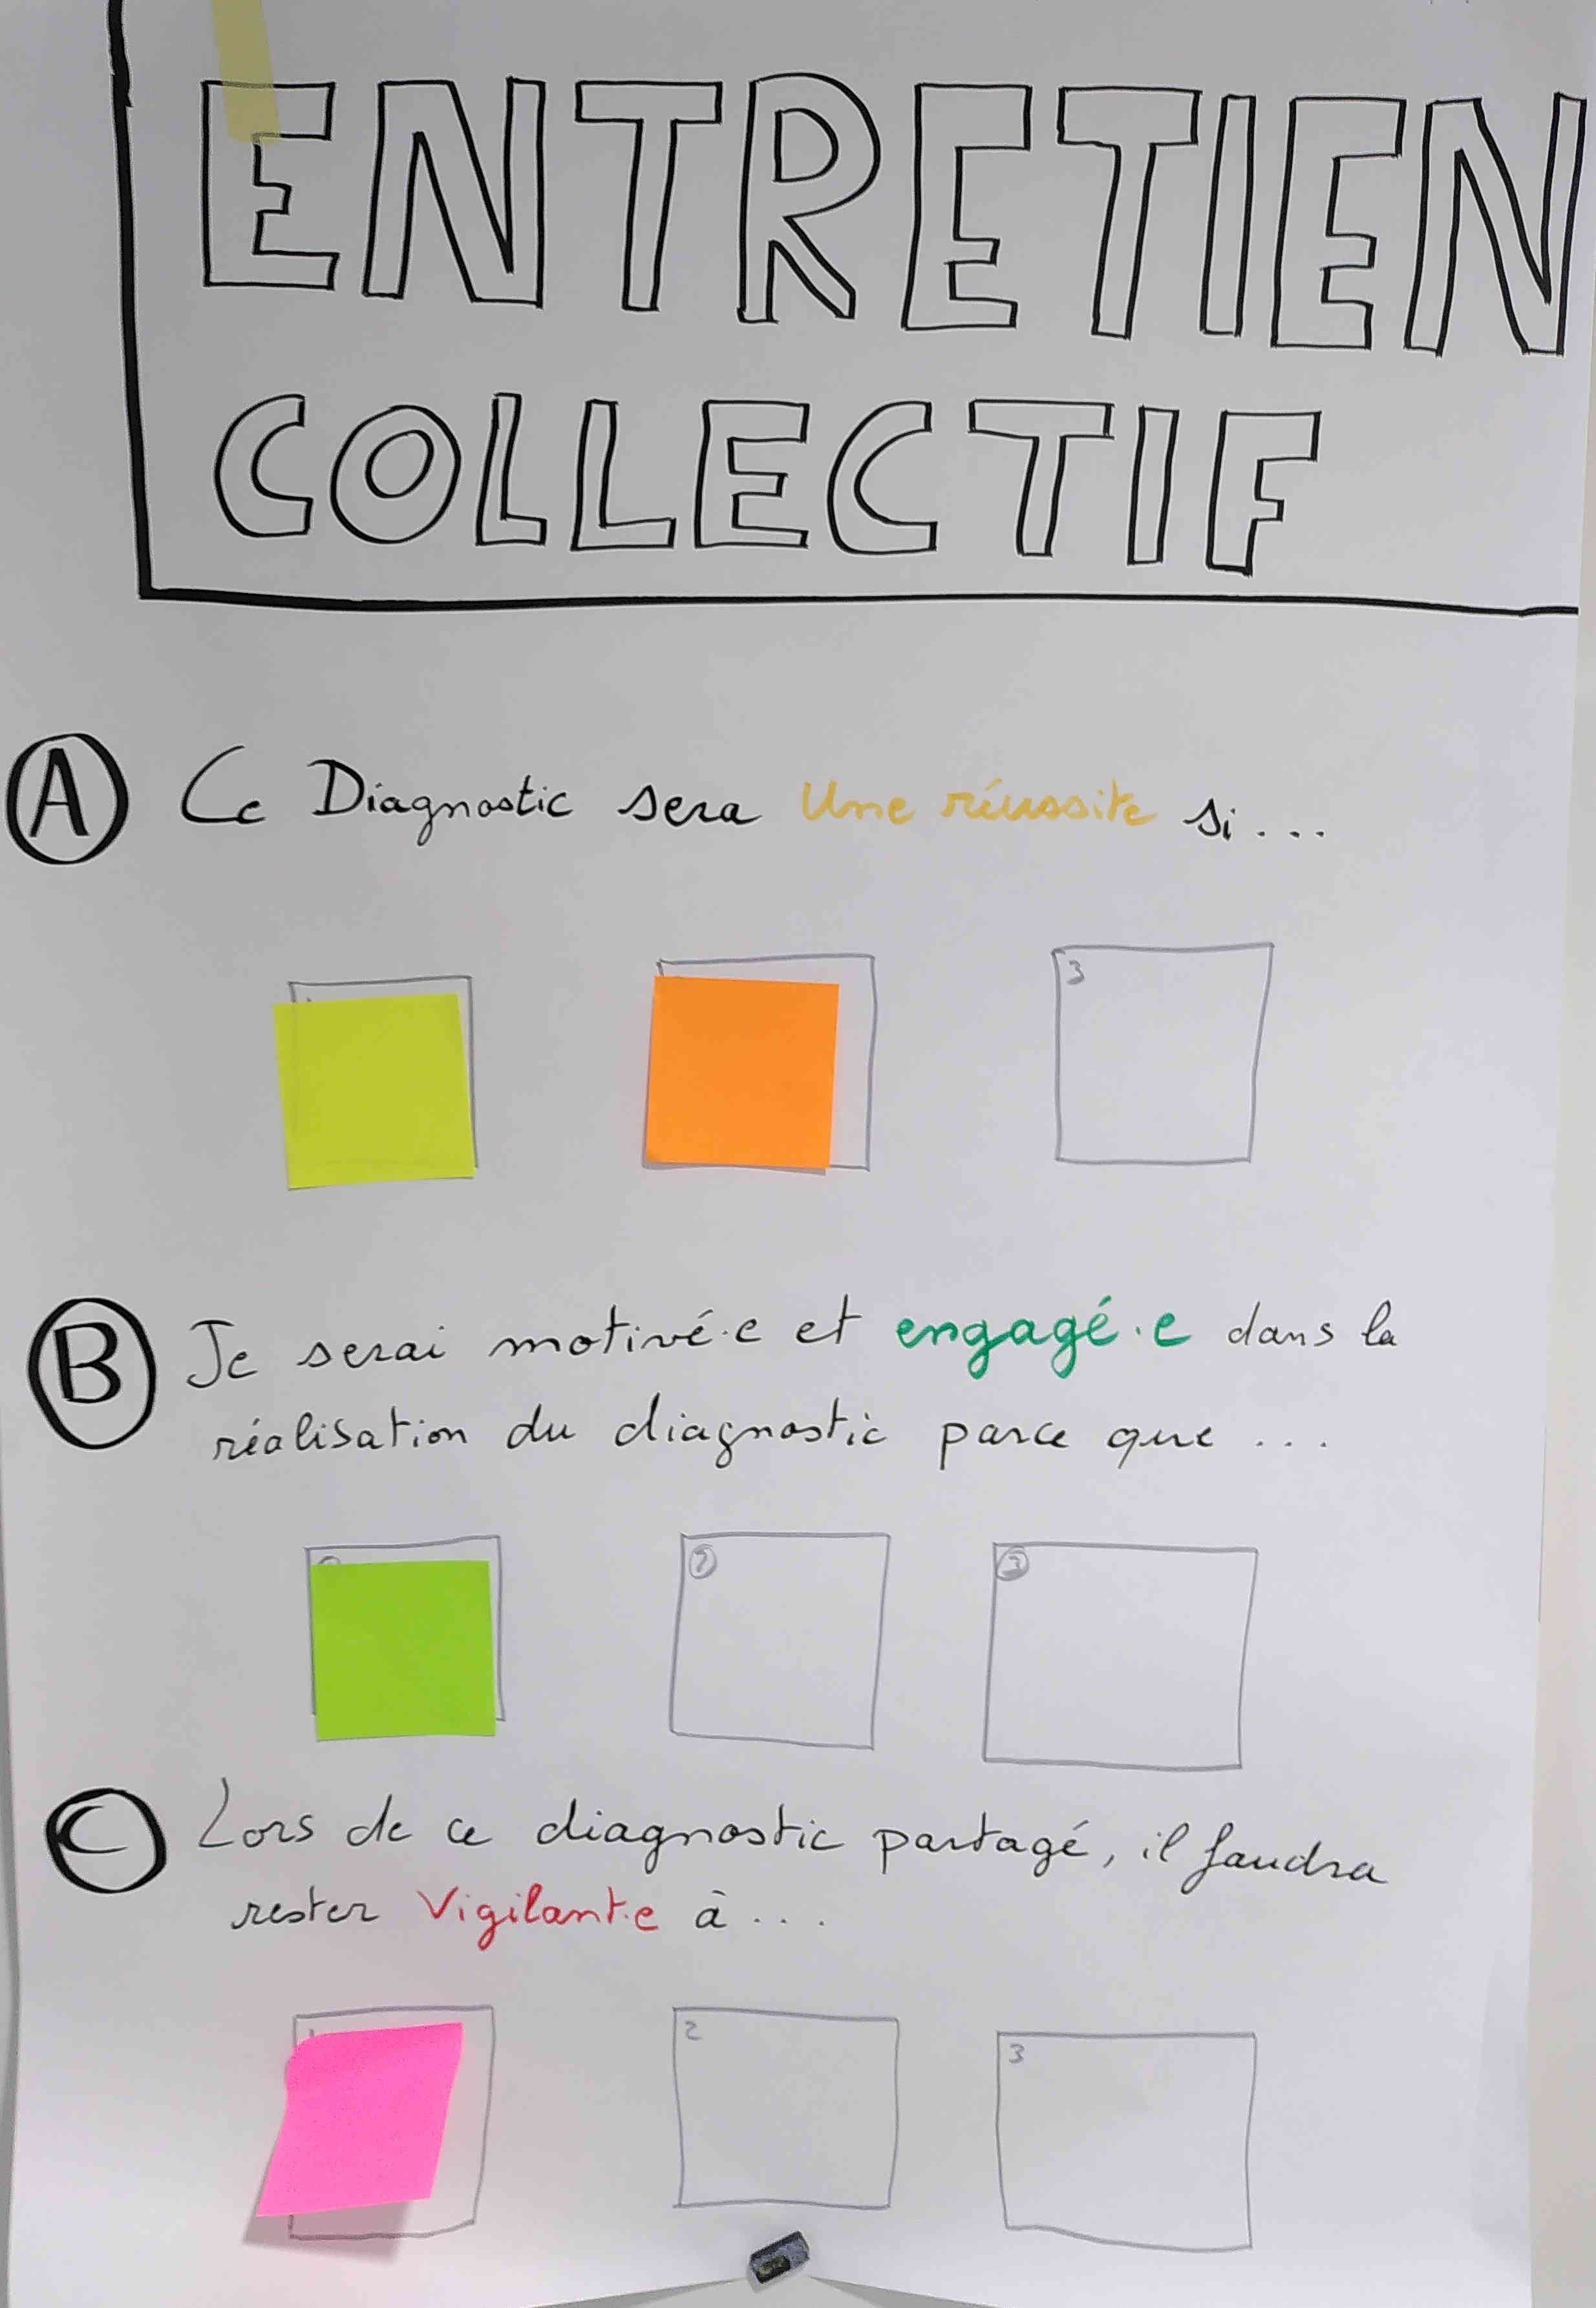 ENTRETIEN
COLLECTIF
A Ce Diagnostic sera Une réussite si...
3
B Je serai motivé·e et engagé·e dans la
réalisation du diagnostic parce que ...
2 3
C Lors de ce diagnostic partagé, il faudra
rester Vigilant·e à ...
1 2 3